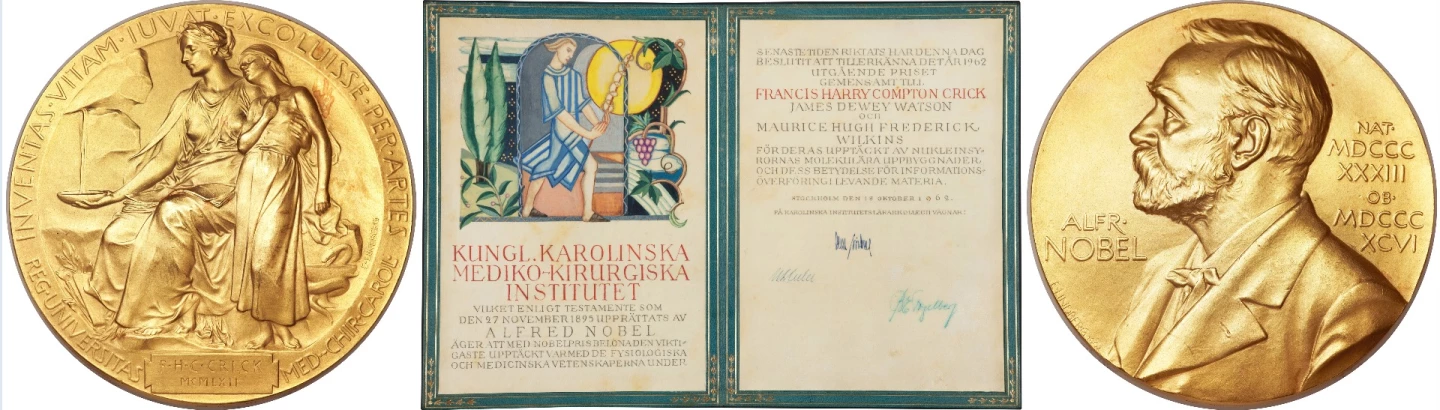 INVENTAS · VITAM · IUVAT · EXCOLUISSE · PER · ARTES
REG · UNIVERSITAS
MED · CHIR · CAROL ·
F · H · C · CRICK
MCMLXII
KUNGL. KAROLINSKA
MEDIKO-KIRURGISKA
INSTITUTET
VILKET ENLIGT TESTAMENTE SOM
DEN 27 NOVEMBER 1895 UPPRÄTTATS AV
ALFRED NOBEL
ÄGER ATT MED NOBELPRIS BELÖNA DEN VIKTI-
GASTE UPPTÄCKT VARMED DE FYSIOLOGISKA
OCH MEDICINSKA VETENSKAPERNA UNDER
SENASTE TIDEN RIKTATS HAR DENNA DAG
BESLUTIT ATT TILLERKÄNNA DET ÅR 1962
UTGÅENDE PRISET
GEMENSAMT TILL
FRANCIS HARRY COMPTON CRICK
JAMES DEWEY WATSON
OCH
MAURICE HUGH FREDERICK
WILKINS
FÖR DERAS UPPTÄCKT AV NUKLEINSY-
RORNAS MOLEKULÄRA UPPBYGGNADER
OCH DESS BETYDELSE FÖR INFORMATIONS-
ÖVERFÖRING I LEVANDE MATERIA.
STOCKHOLM DEN 18 OKTOBER 1962.
ALFR·
NOBEL
NAT·
MDCCC
XXXIII
OB·
MDCCC
XCVI